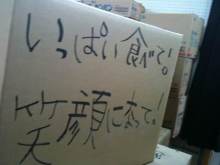 いっぱい食べて!
笑顔になって!